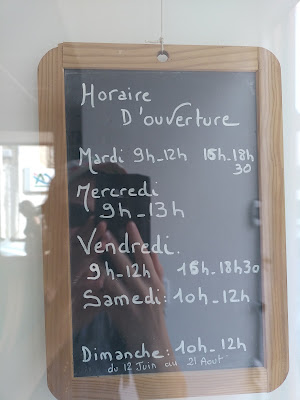 Horaire
D'ouverture
Mardi 9h-12h 16h-18h
30
Mercredi
9h-13h
Vendredi.
9h-12h 16h-18h30
Samedi: 10h-12h
Dimanche: 10h-12h
du 12 Juin au 21 Aout